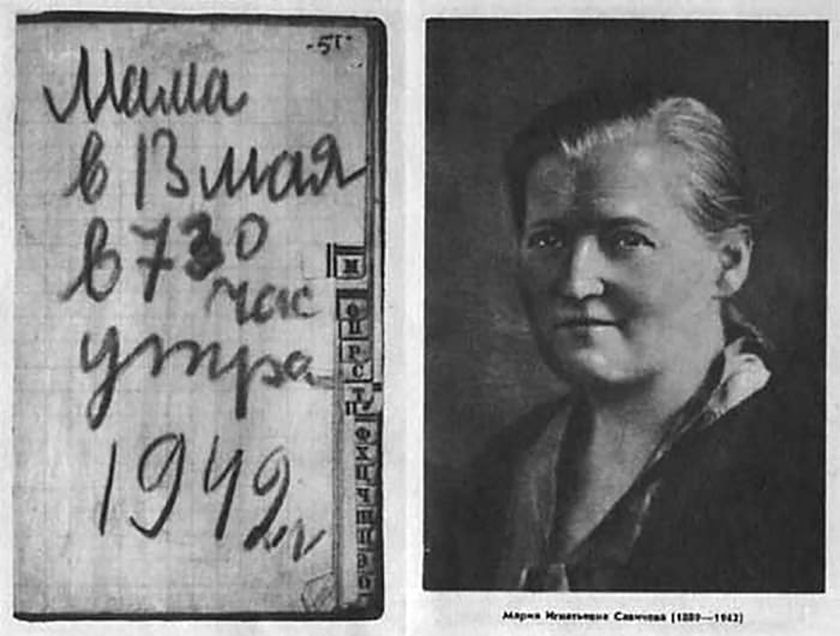 -51-
Мама
в 13 мая
в 7 30
час
утра
1942 г
М
П
Р
С
Т
Мария Игнатьевна Савичева (1889—1942)